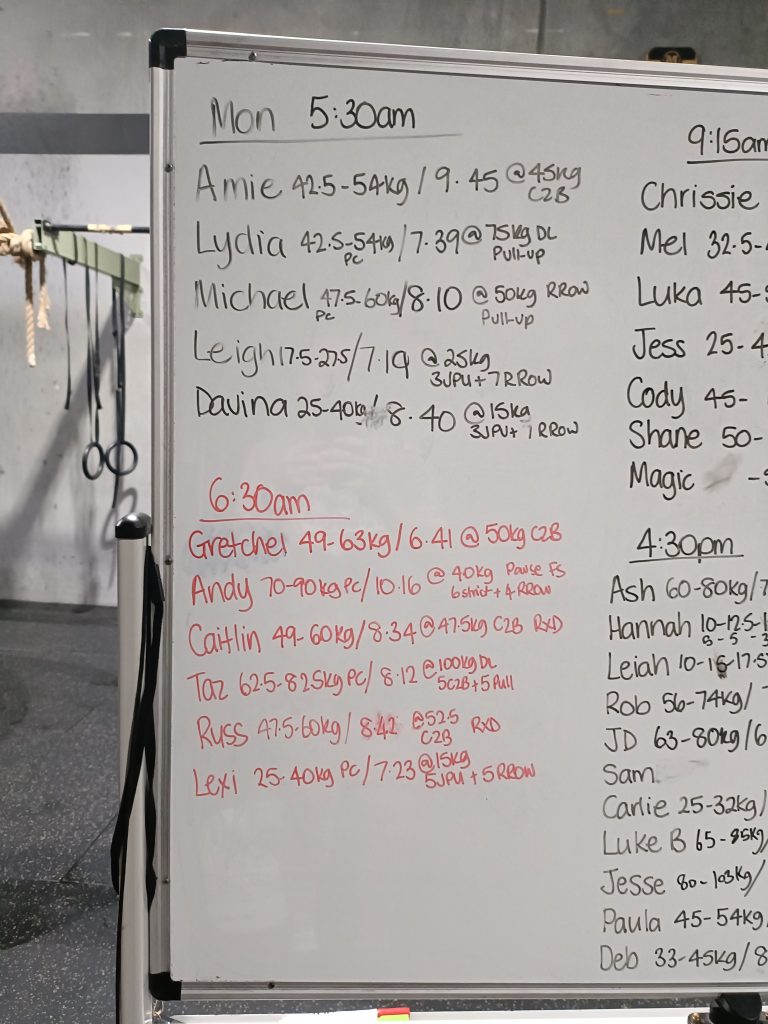 Mon 5:30am
Amie 42.5-54kg / 9.45 @45kg
C2B
Lydia 42.5-54kg / 7.39 @ 75kg DL
PC Pull-up
Michael 47.5-60kg / 8.10 @ 50kg RROW
PC Pull-up
Leigh 17.5-27.5 / 7.19 @ 25kg
3JPU + 7RROW
Davina 25-40kg / 8.40 @ 15kg
3JPU + 7 RROW
6:30am
Gretchel 49-63kg / 6.41 @ 50kg C2B
Andy 70-90kg PC / 10.16 @ 40kg Pause FS
6 strict + 4 RROW
Caitlin 49-60kg / 8.34 @ 47.5kg C2B RXD
Taz 62.5-82.5kg PC / 8.12 @ 100kg DL
5C2B + 5 Pull
Russ 47.5-60kg / 8.42 @ 52.5 RXD
C2B
Lexi 25-40kg PC / 7.23 @ 15kg
5JPU + 5 RROW
9:15am
Chrissie
Mel 32.5-
Luka 45-
Jess 25-4
Cody 45-
Shane 50-
Magic -
4:30pm
Ash 60-80kg / 7
Hannah 10-12.5-1
8 - 5 - 3
Leiah 10-15-17.5
Rob 56-74kg /
JD 63-80kg / 6
Sam
Carlie 25-32kg /
Luke B 65-85kg
Jesse 80-103kg /
Paula 45-54kg
Deb 33-45kg / 8